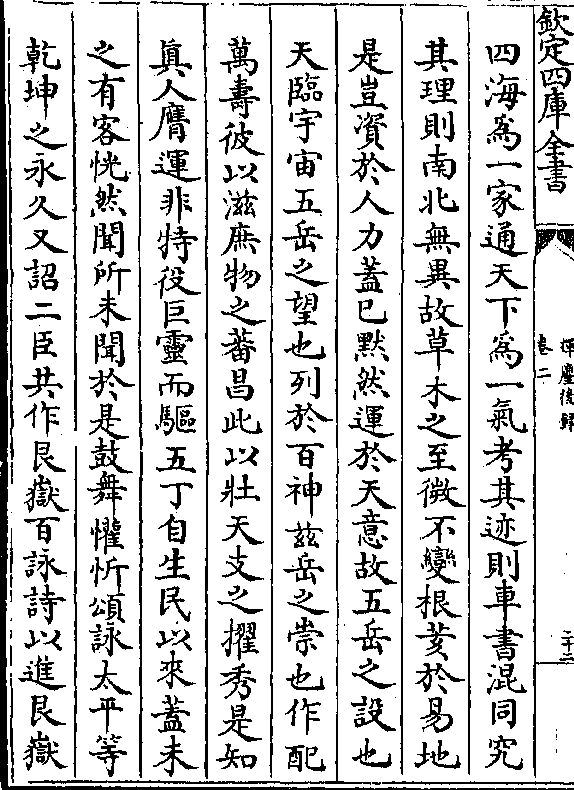 欽定四庫全書
揮麈後錄
卷二
二十二
四海爲一家通天下爲一氣考其迹則車書混同究
其理則南北無異故草木之至微不變根荄於易地
是豈資於人力蓋已默然運於天意故五岳之設也
天臨宇宙五岳之望也列於百神兹岳之崇也作配
萬壽彼以滋庶物之蕃昌此以壯天支之擢秀是知
眞人膺運非特役巨靈而驅五丁自生民以來蓋未
之有客恍然聞所未聞於是鼓舞懽忻頌詠太平等
乾坤之永久又詔二臣共作艮嶽百詠詩以進艮嶽